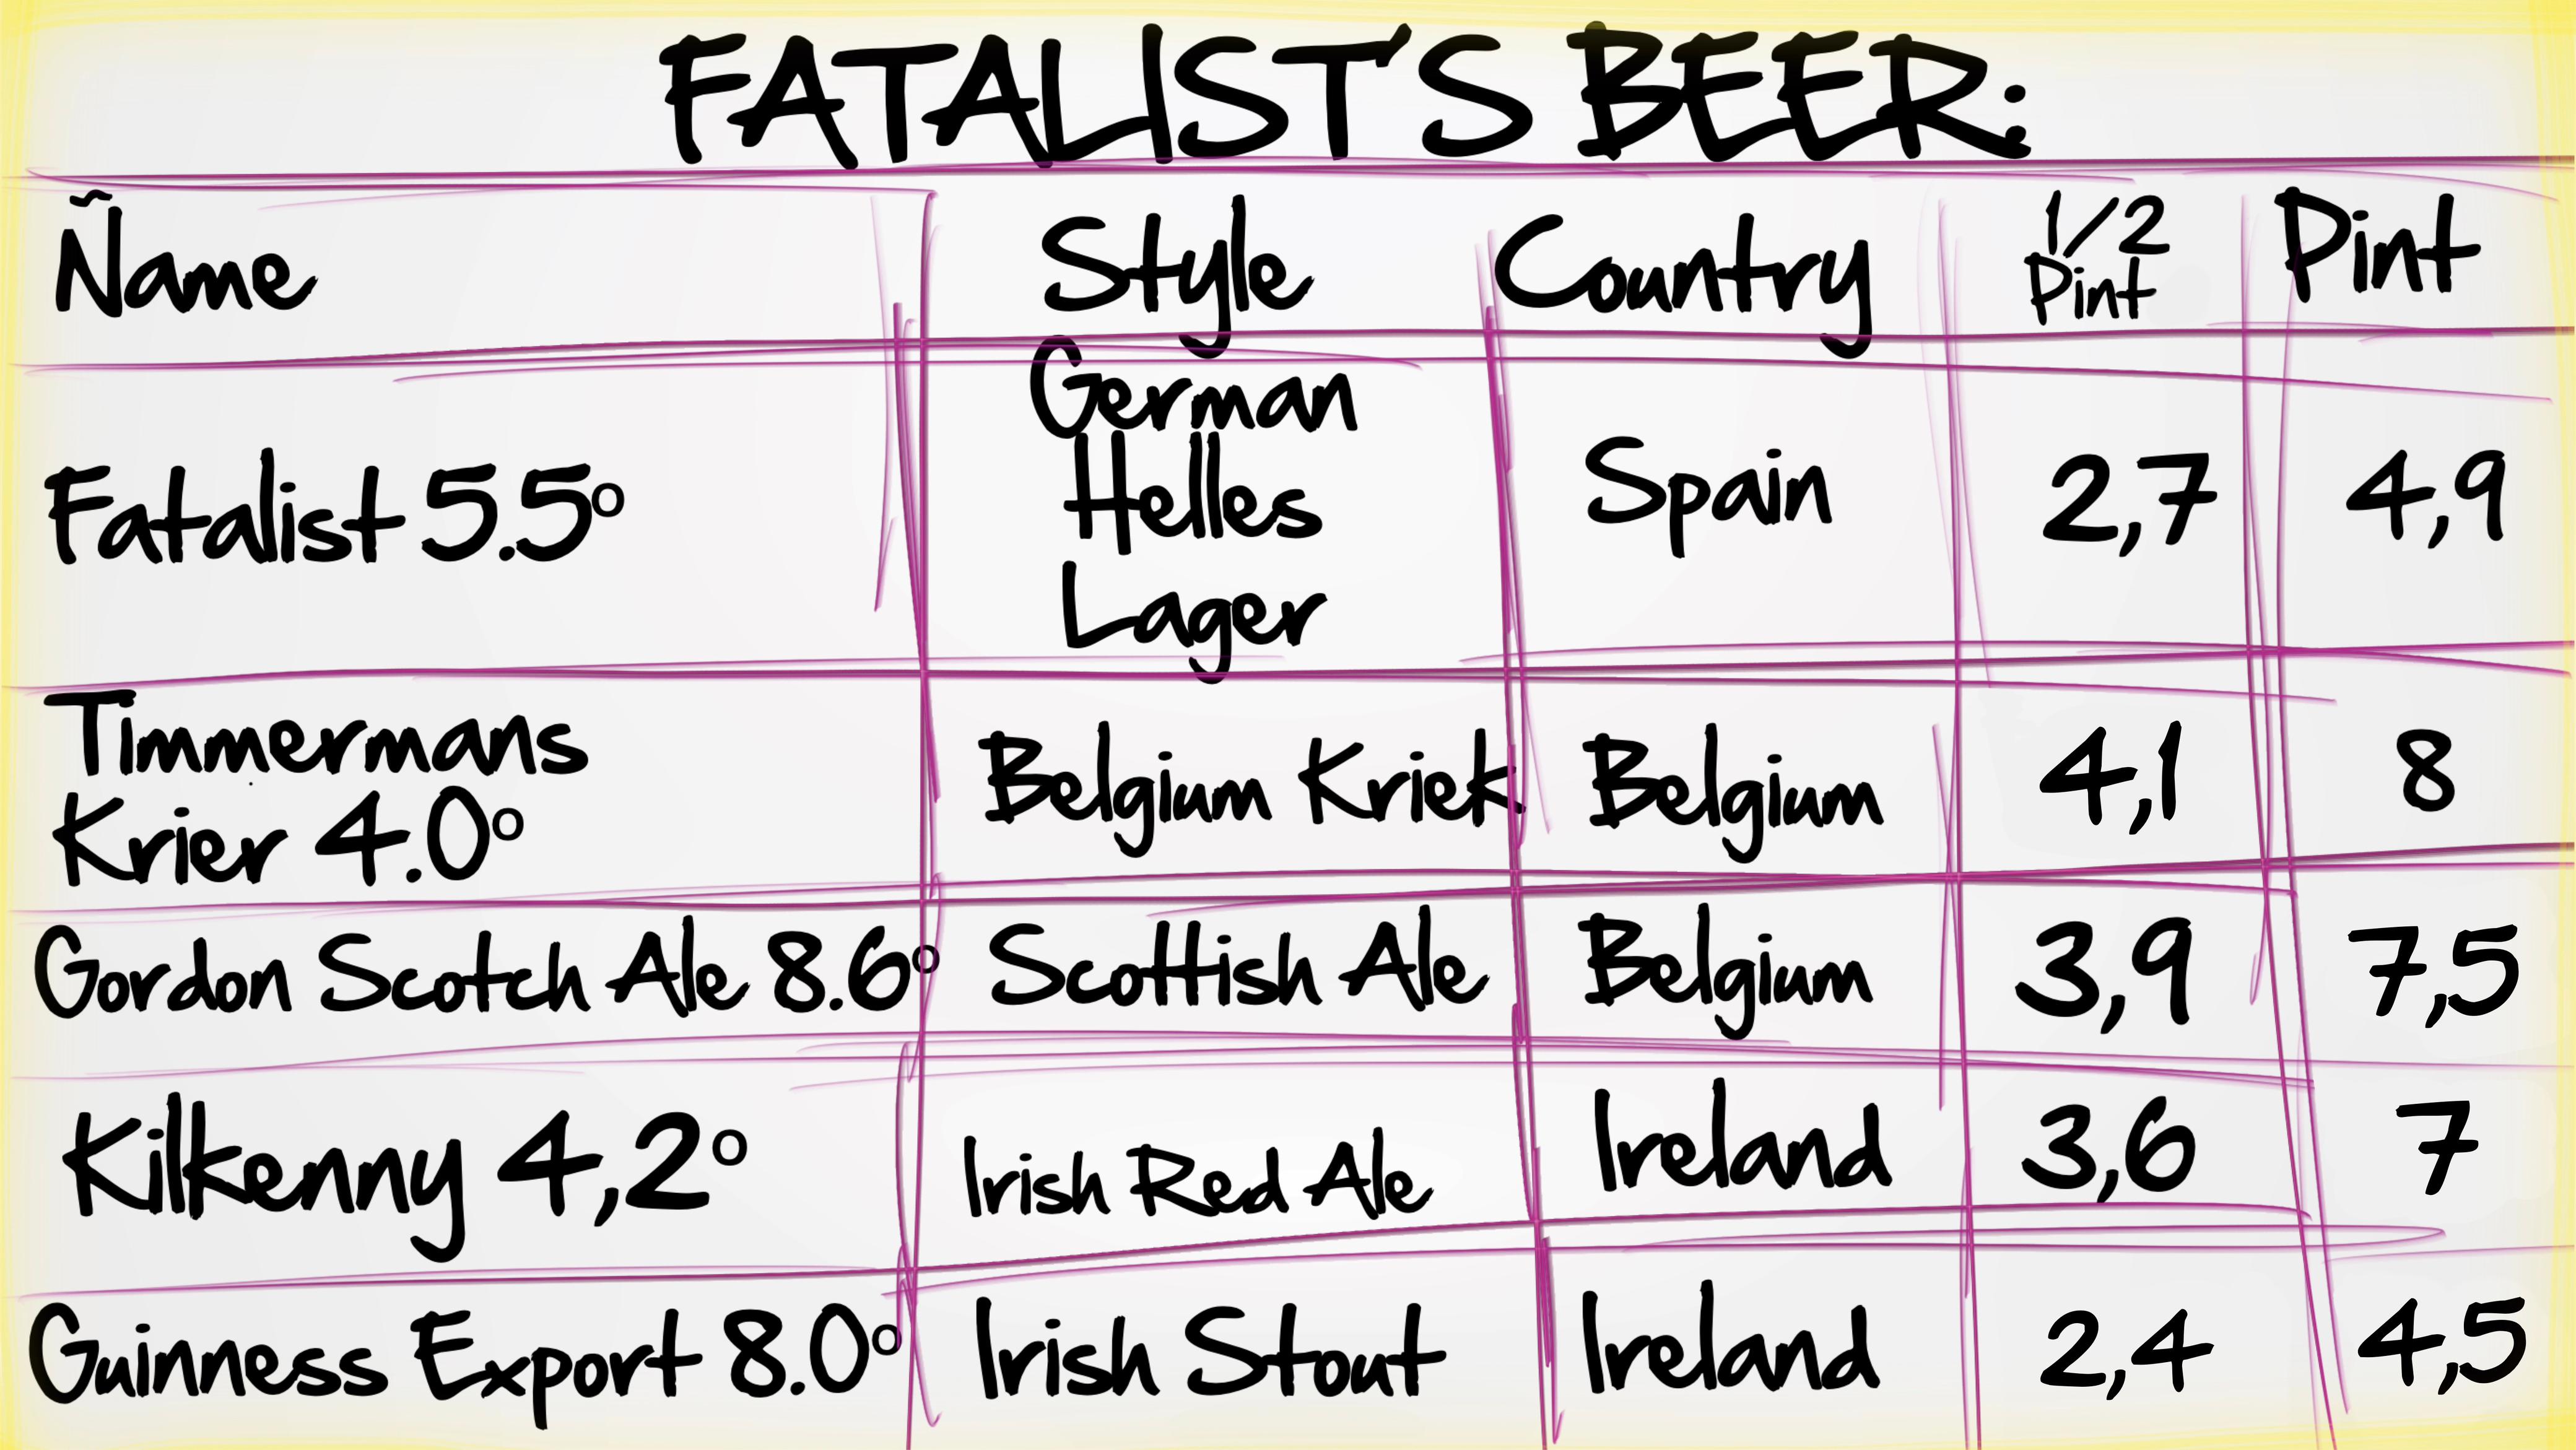 FATALIST'S BEER:
Ñame Style Country 1/2 Pint Pint
Fatalist 5.5º German Helles Lager Spain 2,7 4,9
Timmermans Krier 4.0º Belgium Kriek Belgium 4,1 8
Gordon Scotch Ale 8.6º Scottish Ale Belgium 3,9 7,5
Kilkenny 4,2º Irish Red Ale Ireland 3,6 7
Guinness Export 8.0º Irish Stout Ireland 2,4 4,5